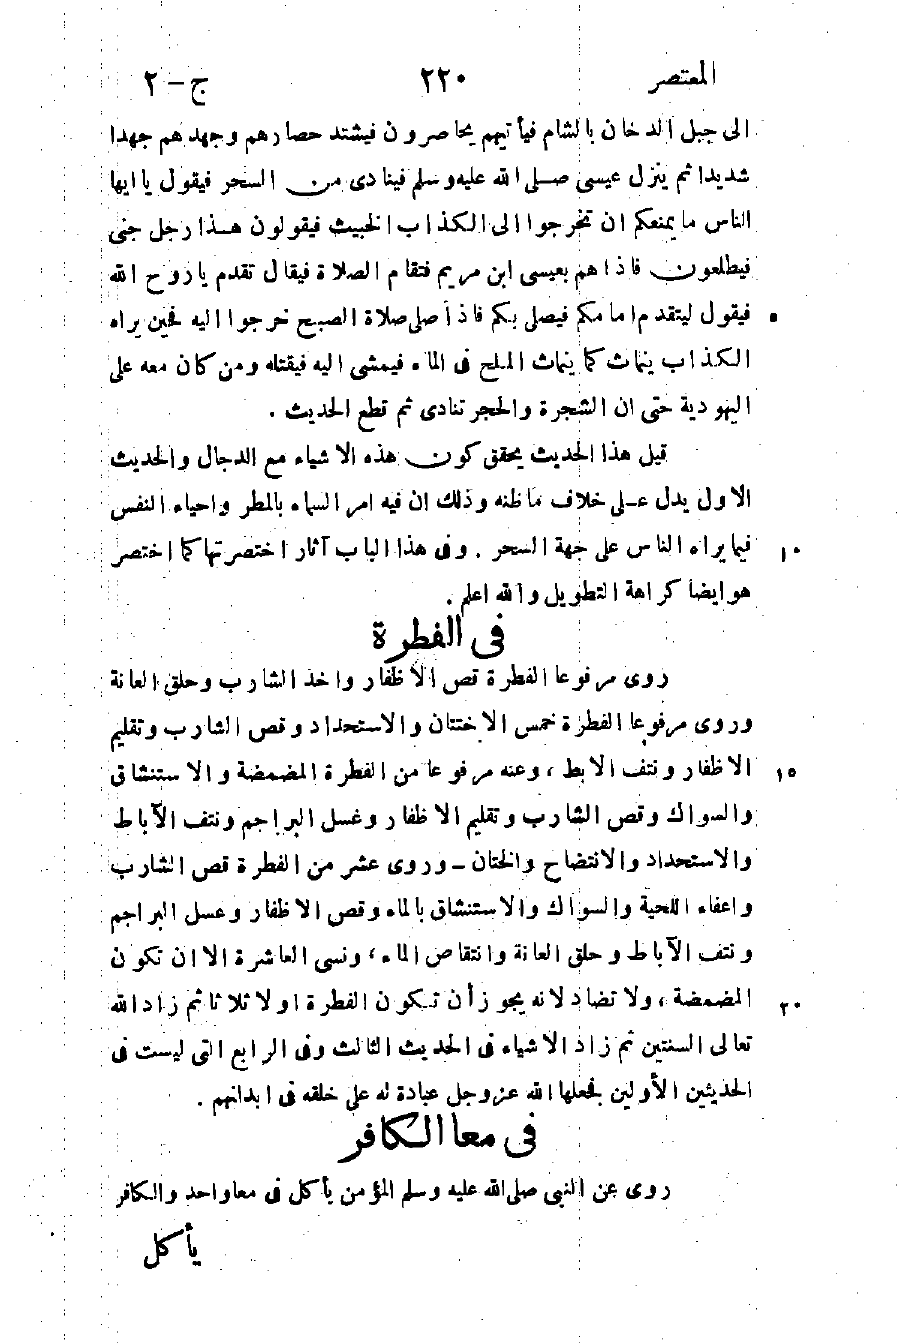 المعتصر ٢٢٠ ج – ٢
الى جبل الدخان بالشام فيأتيهم يحاصرون فيشتد حصارهم وجهدهم جهدا
شديدا ثم ينزل عيسى صلى الله عليه وسلم فينادى من السحر فيقول يا ايها
الناس ما يمنعكم ان تخرجوا الى الكذاب الخبيث فيقولون هذا رجل جنى
فيطلعون فاذا هم بعيسى ابن مريم فتقام الصلاة فيقال تقدم يا روح الله
فيقول ليتقدم امامكم فيصلى بكم فاذا صلى صلاة الصبح خرجوا اليه فحين يراه ٥
الكذاب ينماث كما ينماث الملح فى الماء فيمشى اليه فيقتله ومن كان معه على
اليهودية حتى ان الشجرة والحجر تنادى ثم قطع الحديث .
قيل هذا الحديث يحقق كون هذه الاشياء مع الدجال والحديث
الاول يدل على خلاف ما ظنه وذلك ان فيه امر السماء بالمطر واحياء النفس
فيما يراه الناس على جهة السحر . وفى هذا الباب آثار اختصرتها كما اختصر ١٠
هو ايضا كراهة التطويل والله اعلم .
فى الفطرة
روى مرفوعا الفطرة قص الاظفار واخذ الشارب وحلق العانة
وروى مرفوعا الفطرة خمس الاختتان والاستحداد وقص الشارب وتقليم
الاظفار ونتف الابط ، وعنه مرفوعا من الفطرة المضمضة والاستنشاق ١٥
والسواك وقص الشارب وتقليم الاظفار وغسل البراجم ونتف الآباط
والاستحداد والانتضاح والختان – وروى عشر من الفطرة قص الشارب
واعفاء اللحية والسواك والاستنشاق بالماء وقص الاظفار وغسل البراجم
ونتف الآباط وحلق العانة وانتقاص الماء ، ونسى العاشرة الا ان تكون
المضمضة ، ولا تضاد لانه يجوز أن تكون الفطرة اولا ثلاثا ثم زاد الله ٢٠
تعالى السنتين ثم زاد الاشياء فى الحديث الثالث وفى الرابع التى ليست فى
الحديثين الأولين فجعلها الله عز وجل عبادة له على خلقه فى ابدانهم .
فى معا الكافر
روى عن النبى صلى الله عليه وسلم المؤمن يأكل فى معا واحد والكافر
يأكل